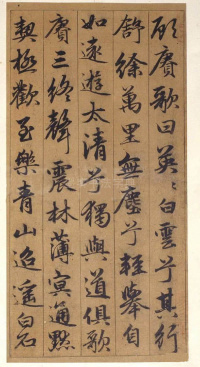 所賡歌曰英〻白雲兮其行
舒徐萬里無塵兮輕舉自
如遠遊太清兮獨與道俱歌
賡三終聲震林薄冥通默
契極歡至樂青山迢遥白石